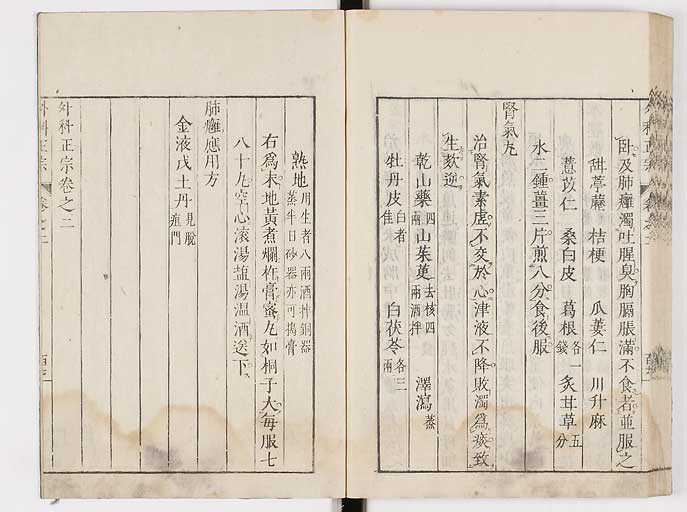 臥及肺癰濁吐腥臭胸膈脹滿不食者並服之
甜葶藶 桔梗 瓜蔞仁 川升麻
薏苡仁 桑白皮 葛根各一錢 炙甘草五分
水二鍾薑三片煎八分食後服
腎氣丸
治腎氣素虛不交於心津液不降敗濁為痰致
生欬逆
乾山藥四兩 山茱萸去核四兩酒拌 澤瀉蒸
牡丹皮白者佳 白茯苓各三兩
熟地用生者八兩酒拌銅器蒸半日砂器亦可搗膏
右為末地黃煮爛杵膏蜜丸如桐子大每服七
八十丸空心滾湯鹽湯温酒送下
肺癰應用方
金液戊土丹見脫疽門
外科正宗卷之二
外科正宗 卷之二